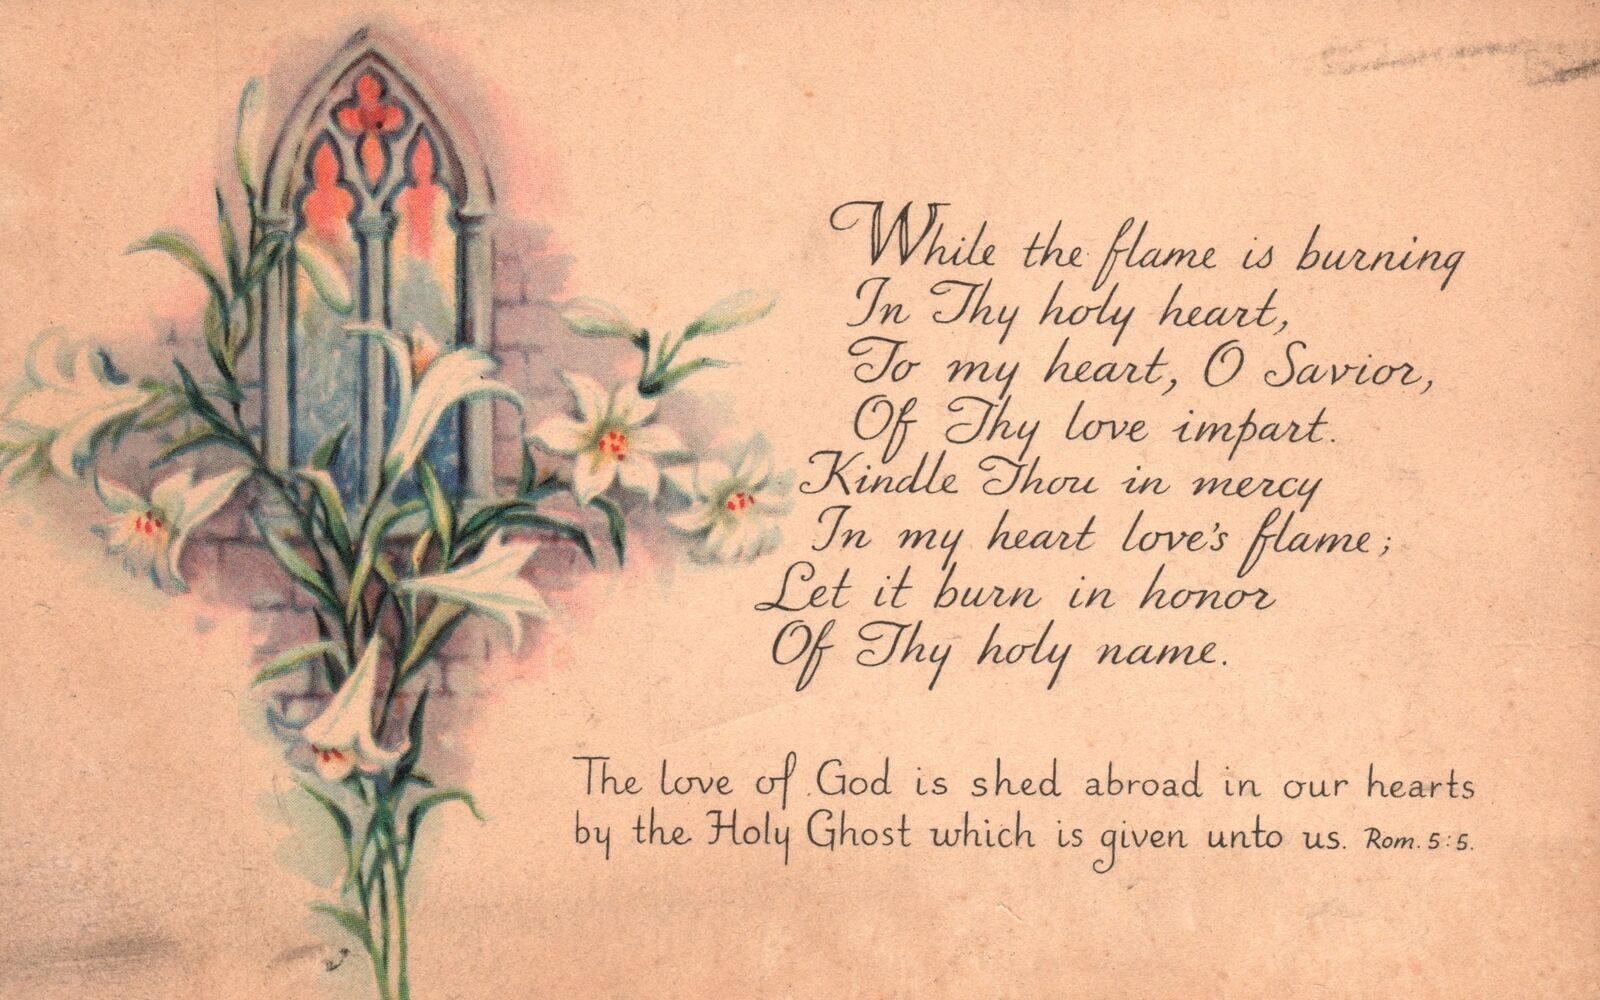 While the flame is burning
In Thy holy heart,
To my heart, O Savior,
Of Thy love impart.
Kindle Thou in mercy
In my heart love's flame;
Let it burn in honor
Of Thy holy name.
The love of God is shed abroad in our hearts
by the Holy Ghost which is given unto us. Rom. 5:5.